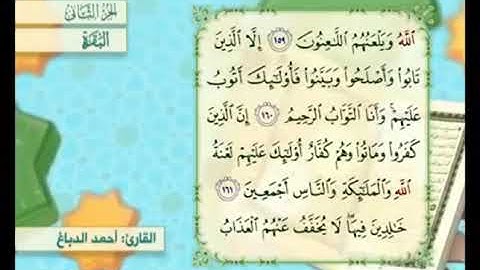 الجزء الثاني
البقرة
ٱللَّهُ وَيَلْعَنُهُمُ ٱللَّٰعِنُونَ ١٥٩ إِلَّا ٱلَّذِينَ
تَابُوا۟ وَأَصْلَحُوا۟ وَبَيَّنُوا۟ فَأُو۟لَٰٓئِكَ أَتُوبُ
عَلَيْهِمْ ۚ وَأَنَا ٱلتَّوَّابُ ٱلرَّحِيمُ ١٦٠ إِنَّ ٱلَّذِينَ
كَفَرُوا۟ وَمَاتُوا۟ وَهُمْ كُفَّارٌ أُو۟لَٰٓئِكَ عَلَيْهِمْ لَعْنَةُ
ٱللَّهِ وَٱلْمَلَٰٓئِكَةِ وَٱلنَّاسِ أَجْمَعِينَ ١٦١
خَٰلِدِينَ فِيهَا ۖ لَا يُخَفَّفُ عَنْهُمُ ٱلْعَذَابُ
القارئ: أحمد الدباغ